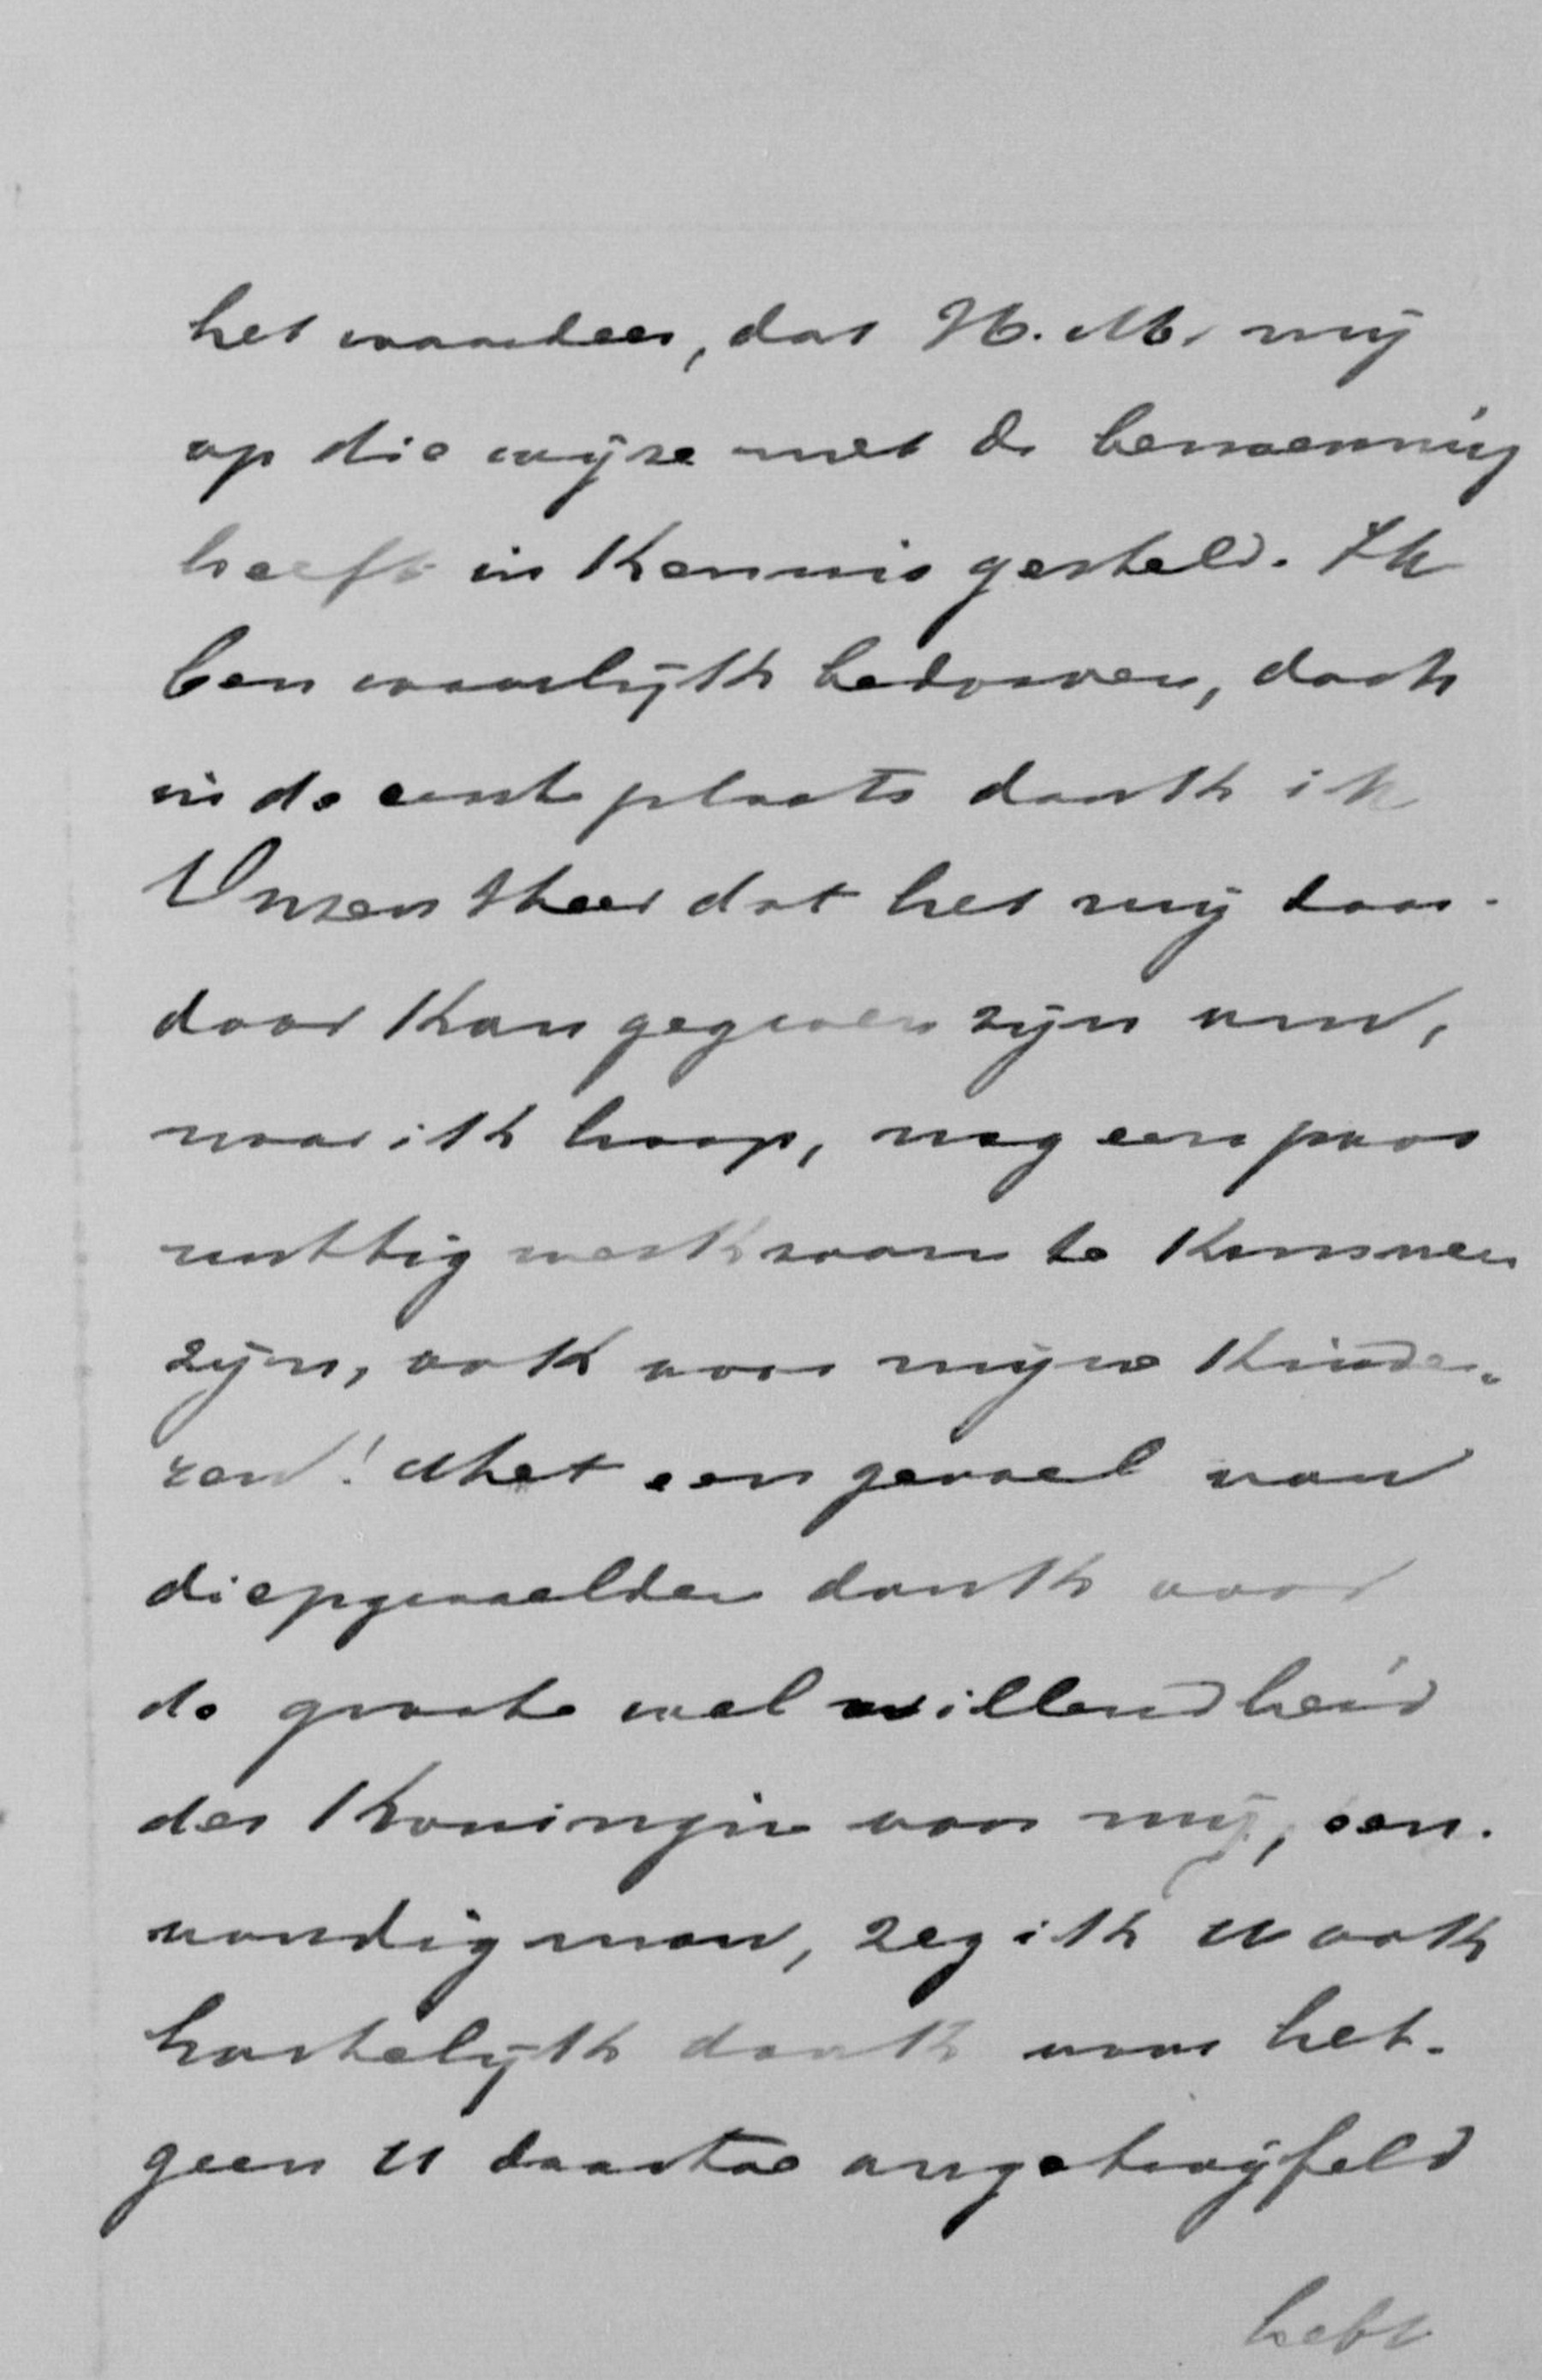 het waardeer, dat H.M. mij
op die wijze met de benoeming
heeft in Kennis gesteld. Ik
ben waarlijk bedorven, doch
in de eerste plaats dank ik
Onzen Heer dat het mij daar-
door Kan gegeven zijn om,
naar ik hoop, nog een poos
nuttig werkzaam te Kunnen
zijn, ook voor mijne Kinde-
ren! Met een gevoel van
diepgevoelden dank voor
de groote welwillendheid
der Koningin voor mij, een-
voudig man, zeg ik U ook
hartelijk dank voor het-
geen U daartoe ongetwijfeld
hebt